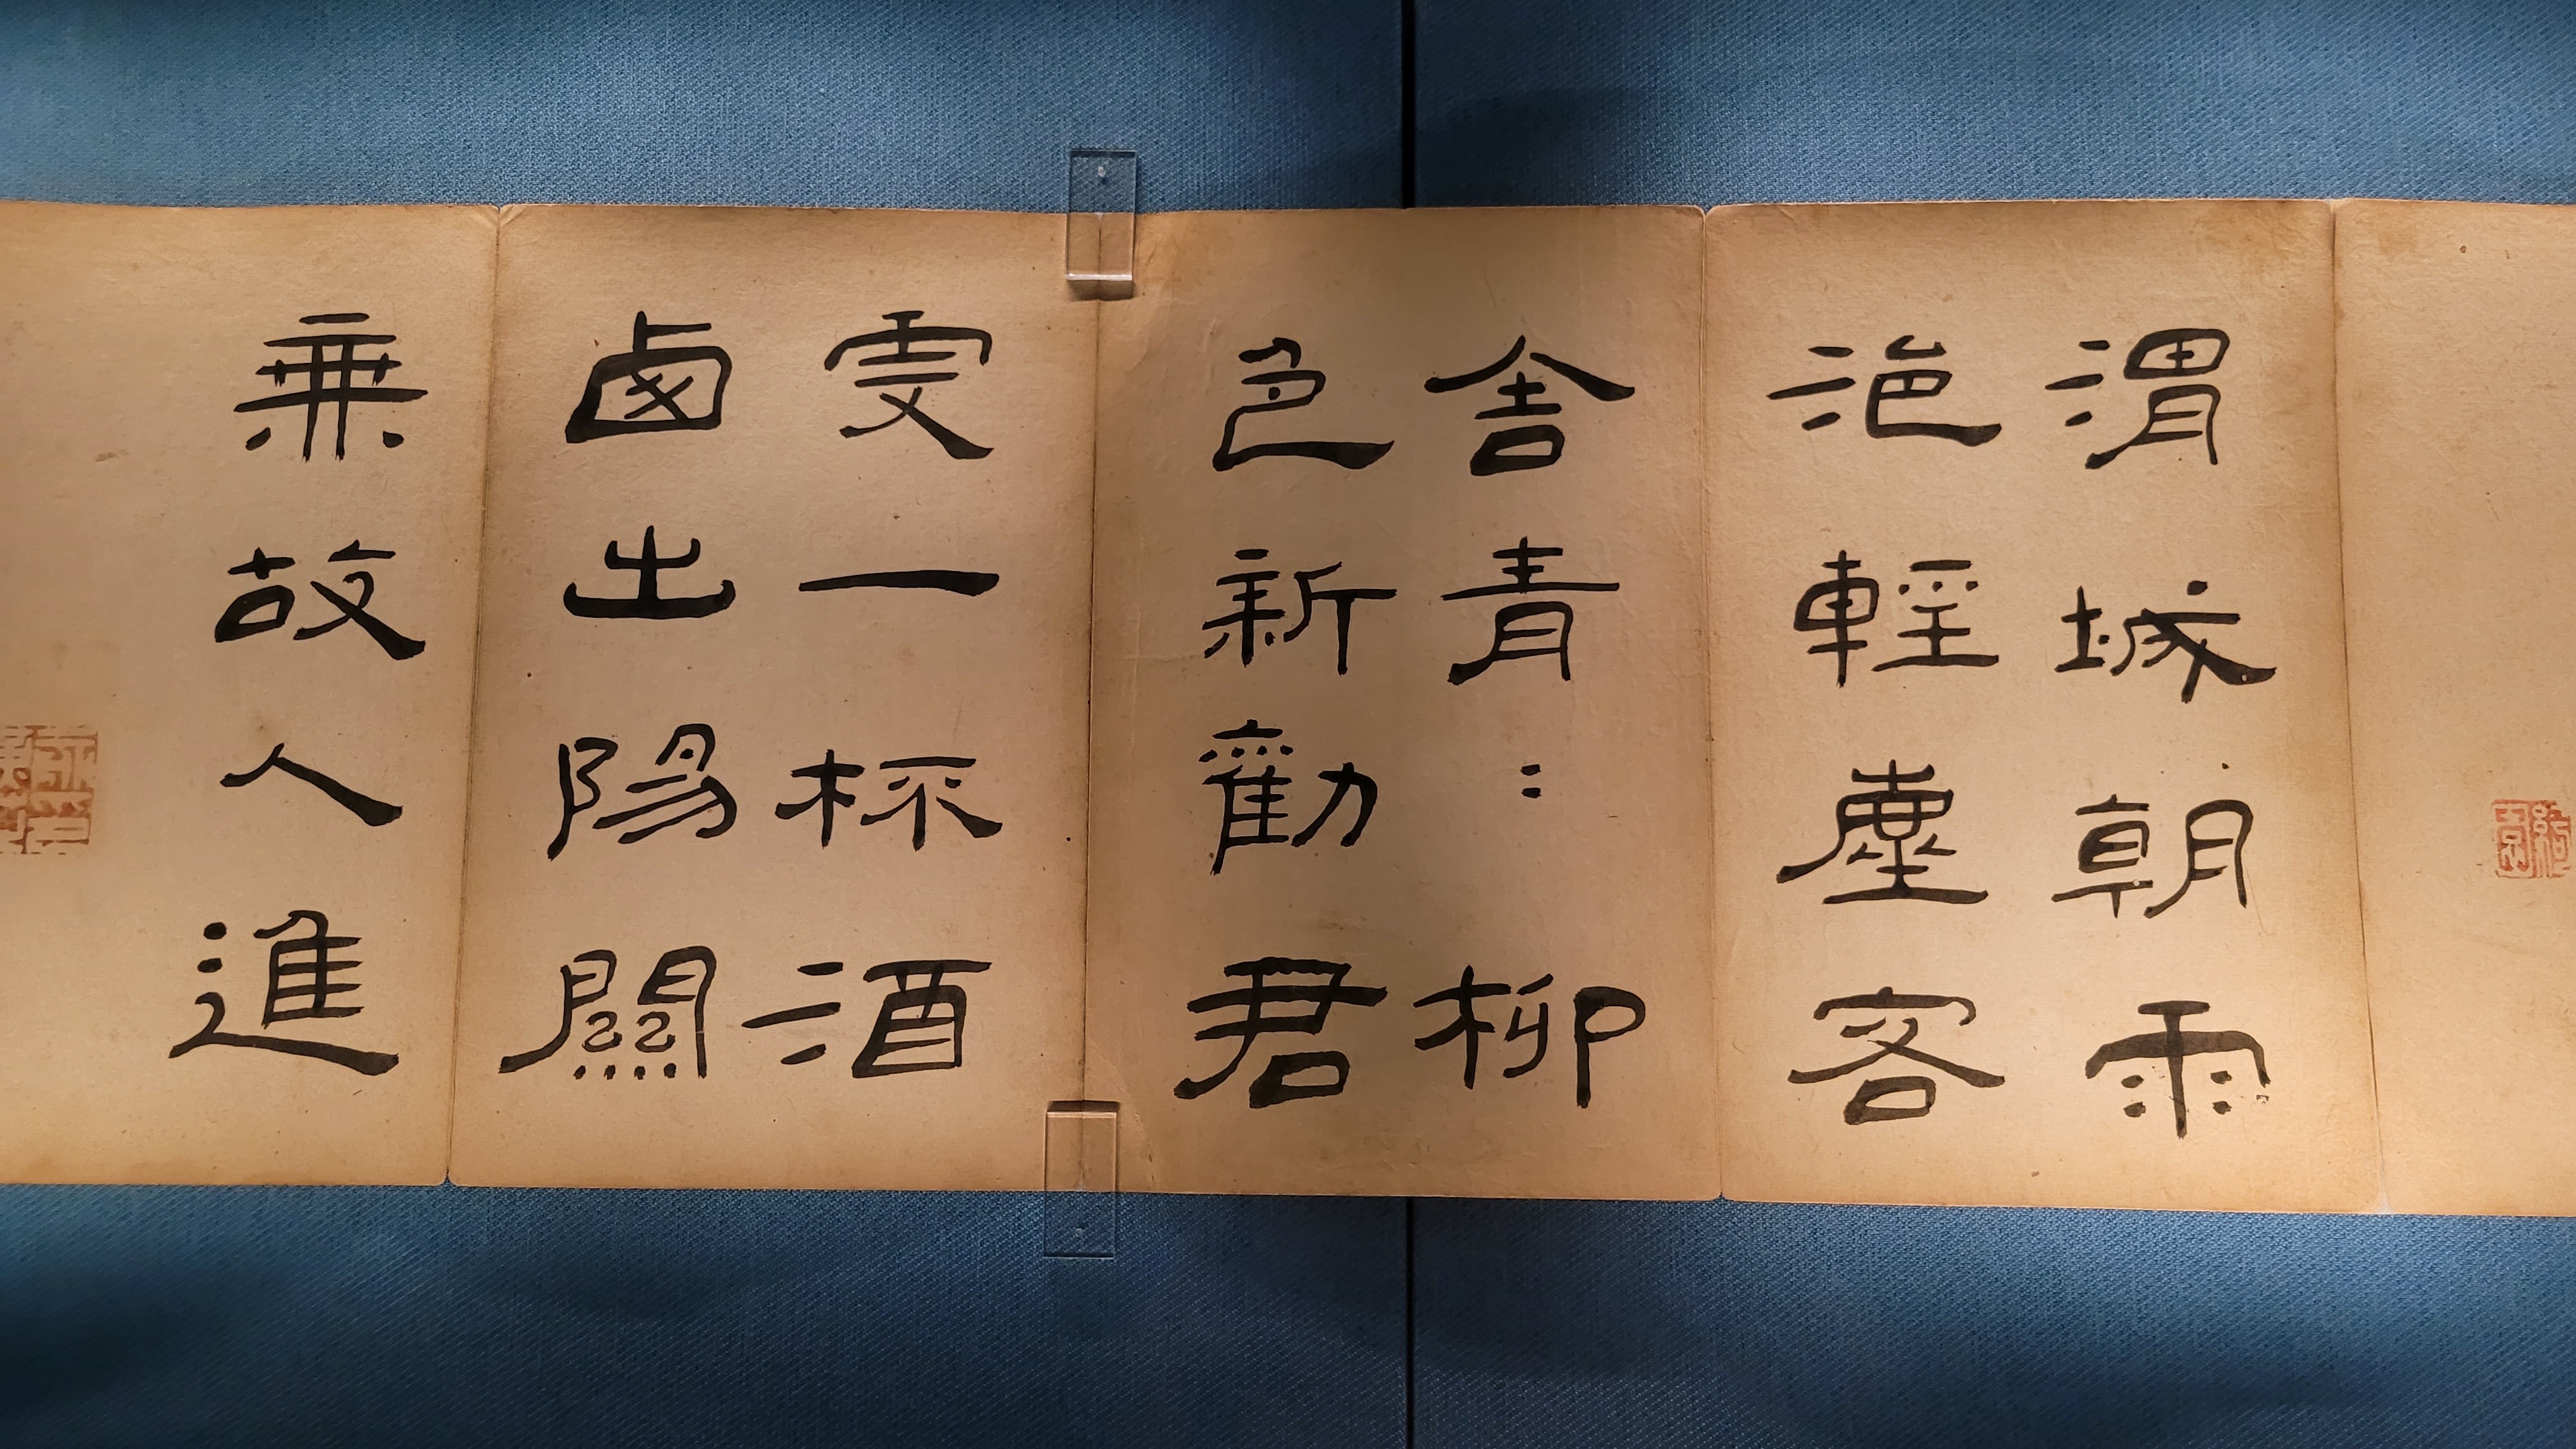 渭城朝雨
浥輕塵客
舍青:柳
色新勸君
更一杯酒
鹵出陽關
無故人進